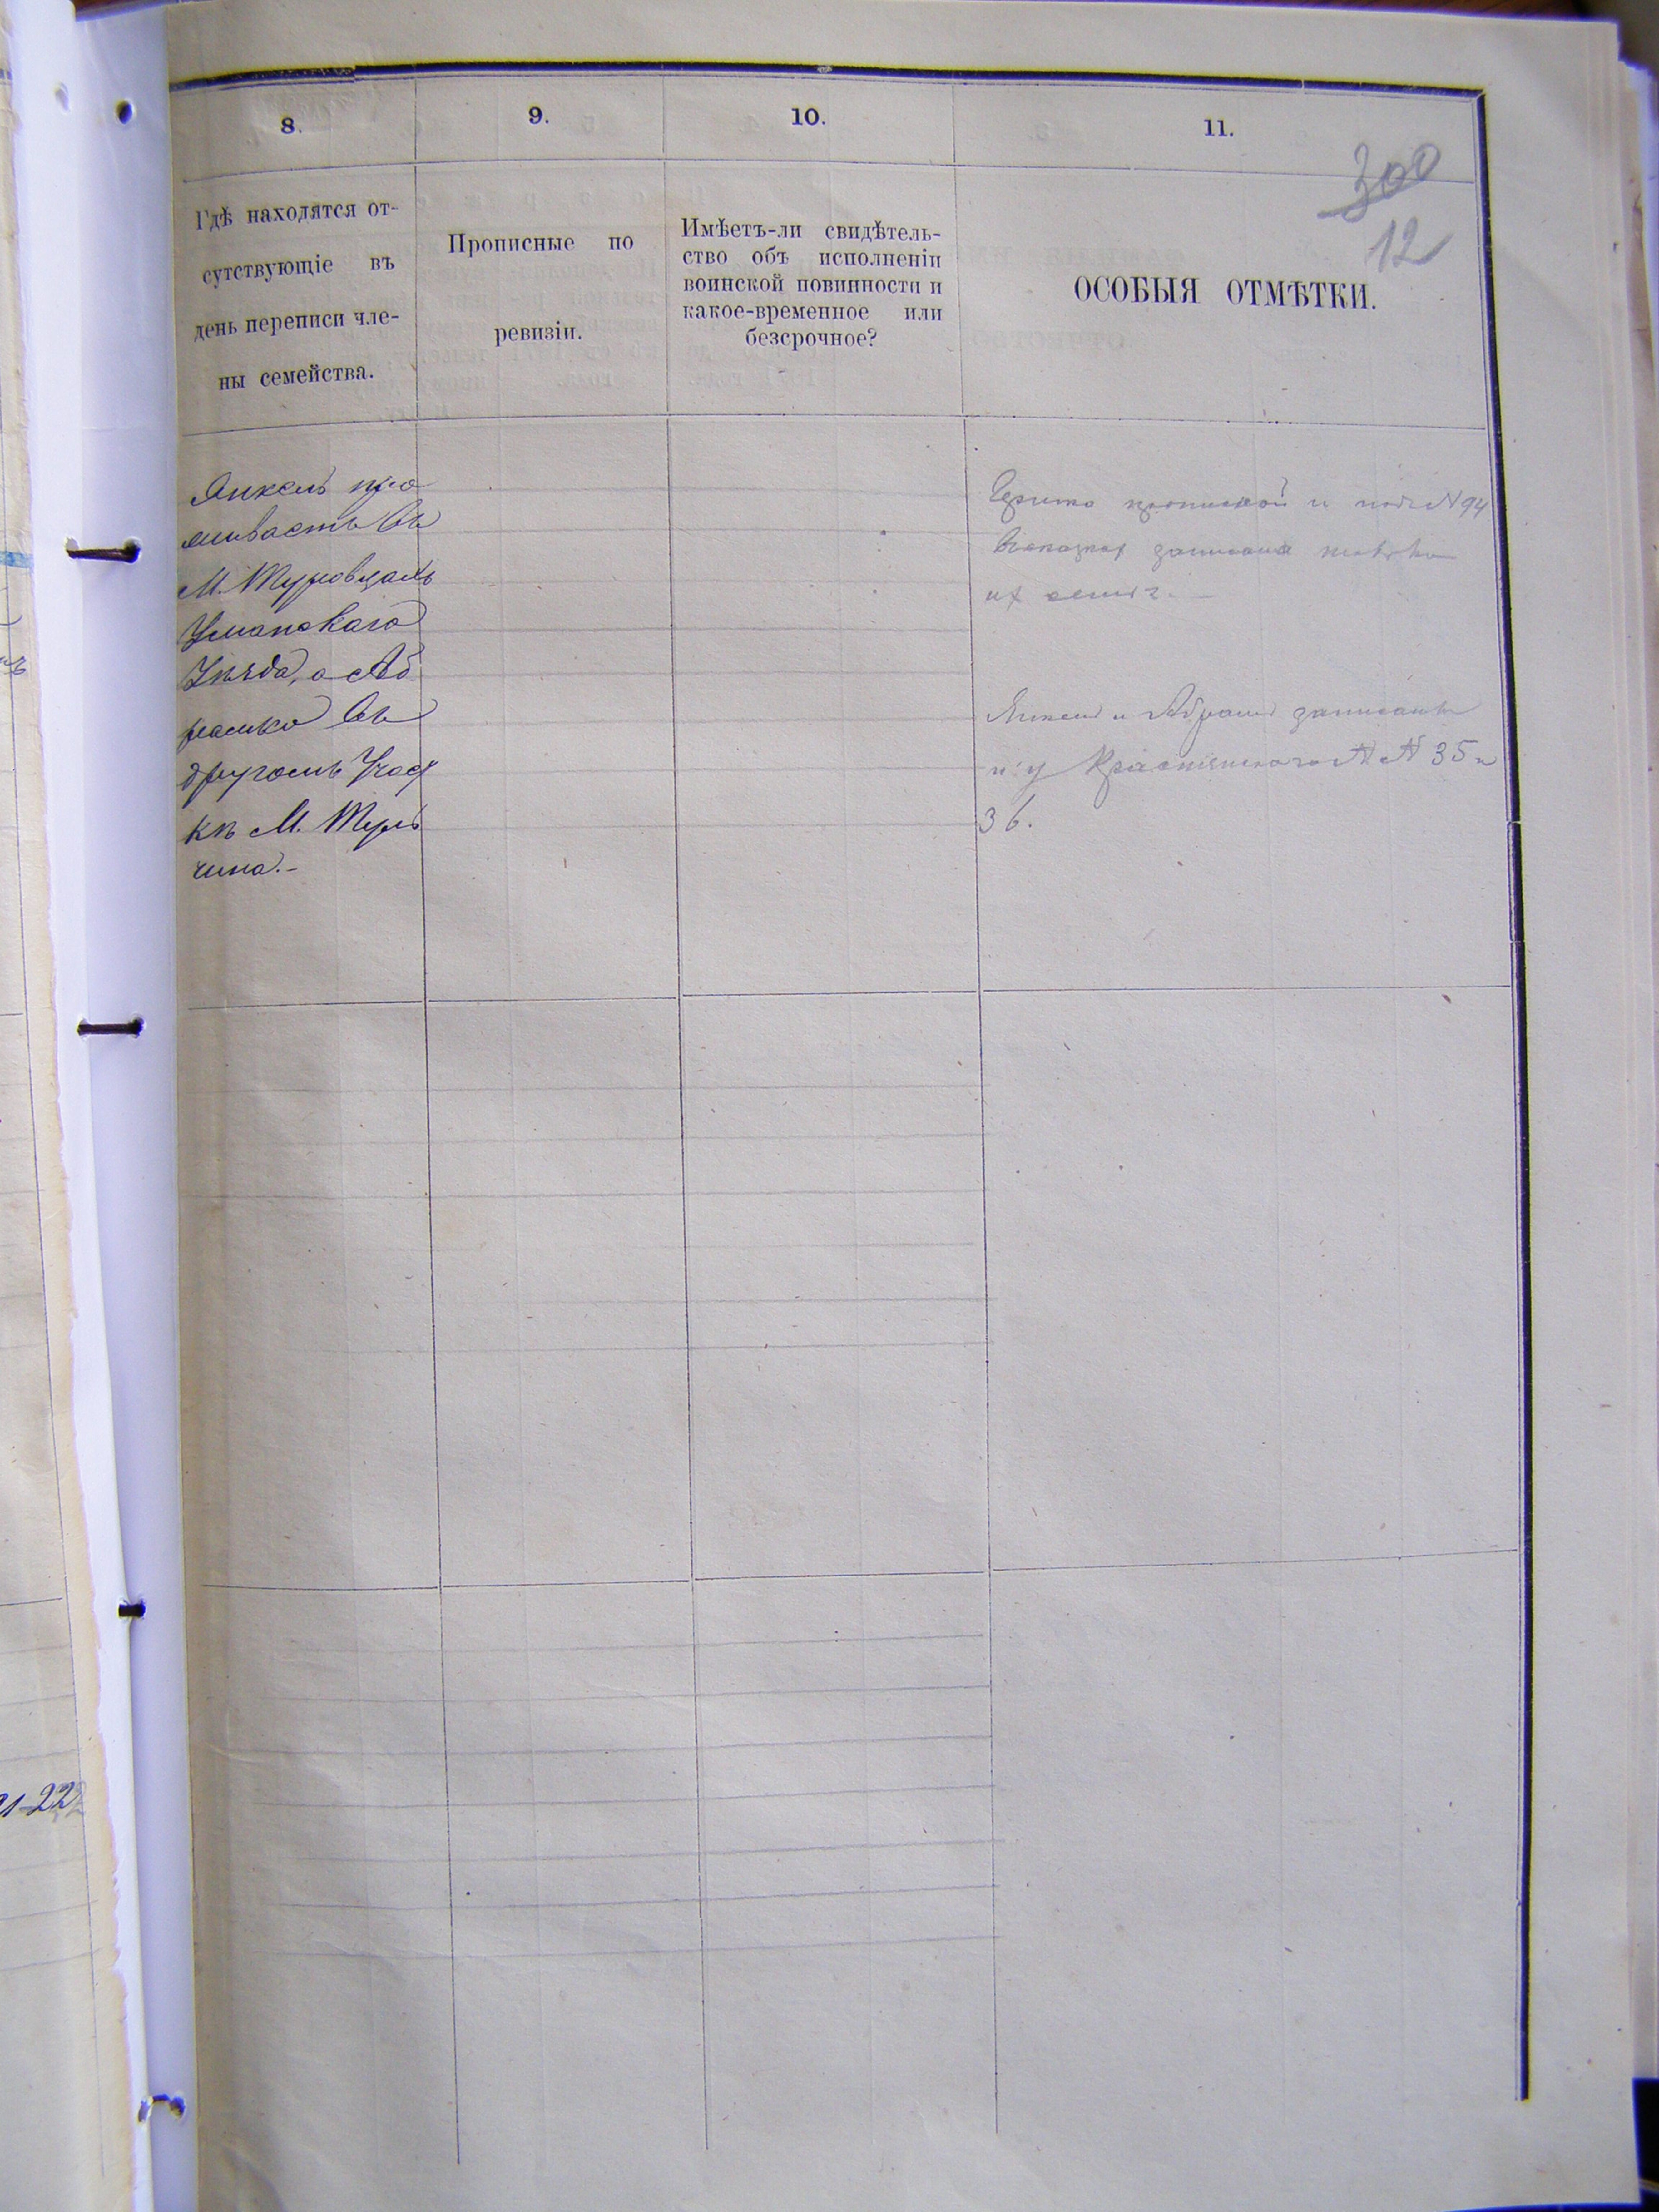 8.
9.
10.
11.
300
12
Гдѣ находятся от-
сутствующіе въ
день переписи чле-
ны семейства.
Прописные по
ревизіи.
Имѣетъ-ли свидѣтель-
ство объ исполненіи
воинской повинности и
какое-временное или
безсрочное?
ОСОБЫЯ ОТМѢТКИ.
Янкель про
живаетъ въ
М. Теуровцахъ
Уманскаго
Уѣзда, а Аб
рамко въ
другомъ Участ
кѣ М. Туль
чина.-
и подъ N 94
записана
их
Янкель и Абрамъ записаны
и у N N 35 и
36.
21-22